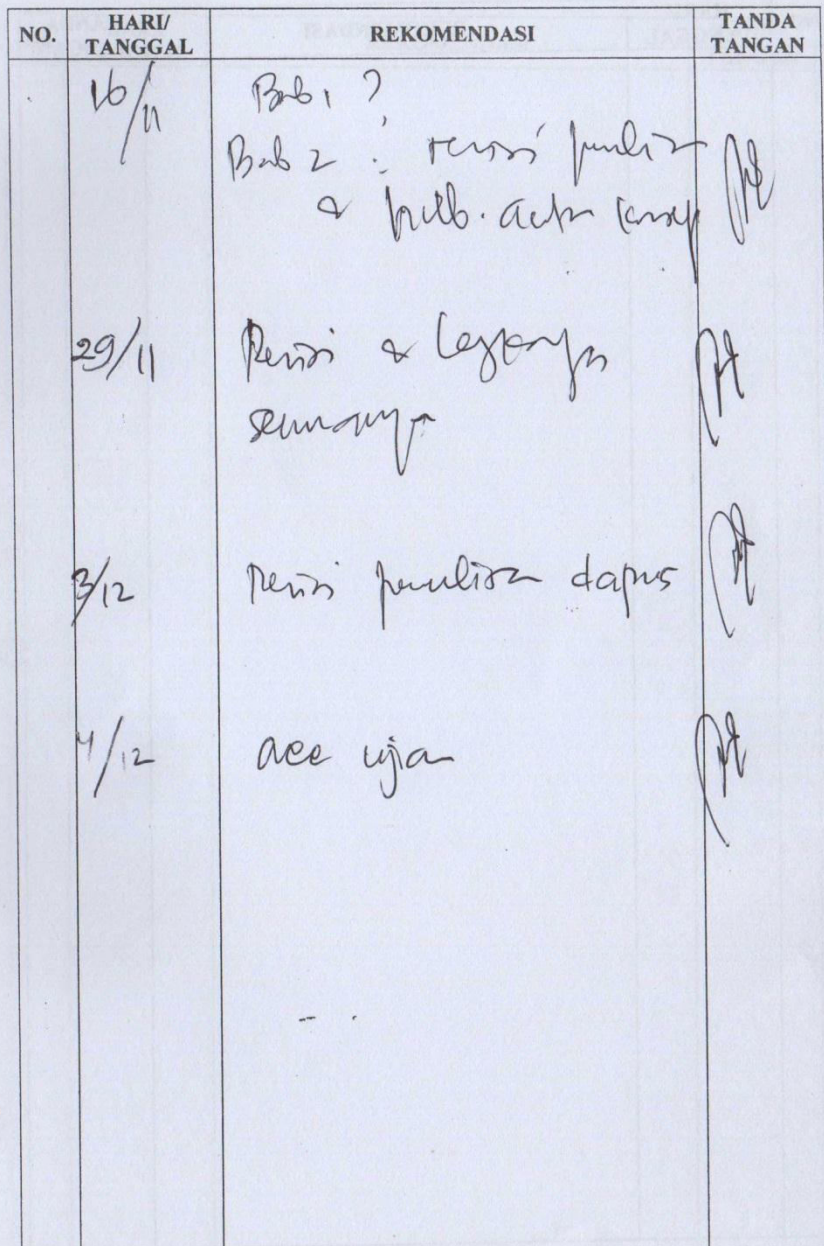 NO. HARI/ TANGGAL REKOMENDASI TANDA TANGAN
16/11 Bab 1 ?
Bab 2 : revisi penulisan
& hub. antar konsep
29/11 Revisi & lengkapi
semuanya
3/12 Revisi penulisan dapus
4/12 acc ujian